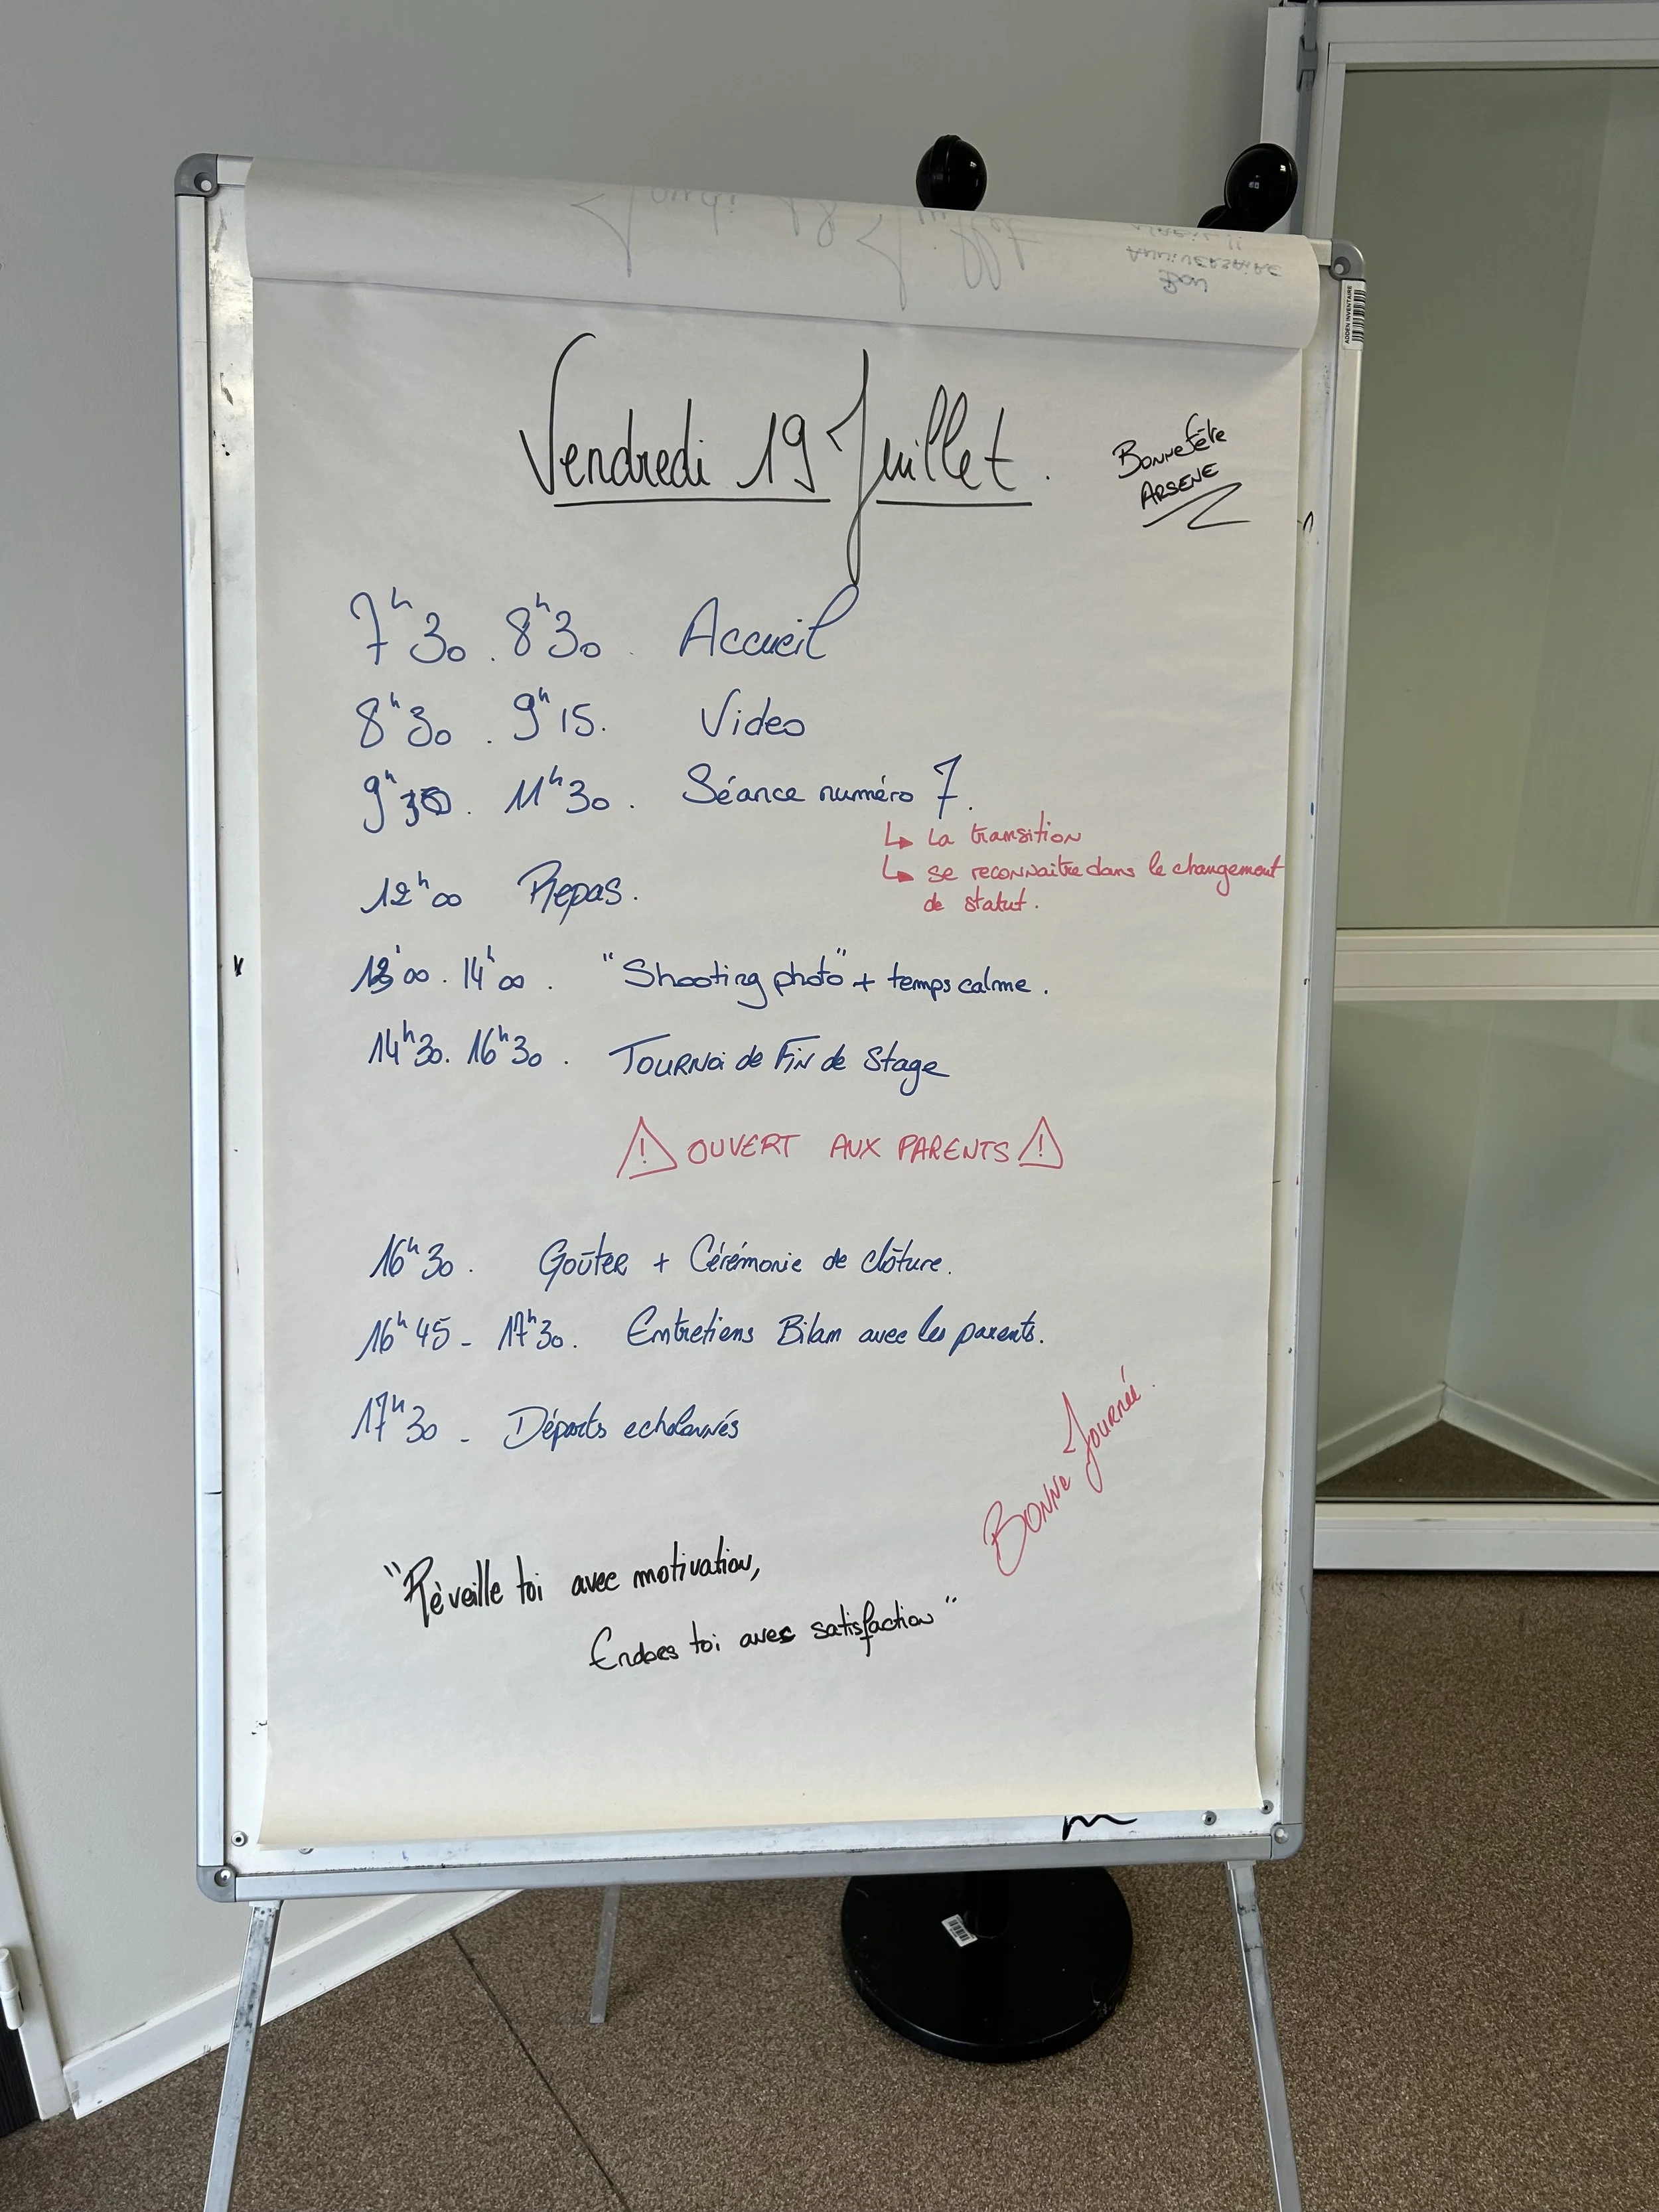 Vendredi 19 Juillet.
Bonne fête
ARSENE
7h30. 8h30. Accueil
8h30. 9h15. Video
9h30. 11h30. Séance numéro 7.
↳ La transition
↳ se reconnaitre dans le changement
de statut.
12h00 Repas.
13h00. 14h00. "Shooting photo" + temps calme.
14h30. 16h30. TOURNOI de FIN de Stage
⚠ OUVERT AUX PARENTS ⚠
16h30. Goûter + Cérémonie de clôture.
16h45 - 17h30. Entretiens Bilan avec les parents.
17h30 - Départs echelonnés
Bonne Journée.
"Réveille toi avec motivation,
Endors toi avec satisfaction"
ADDEN INVENTAIRE